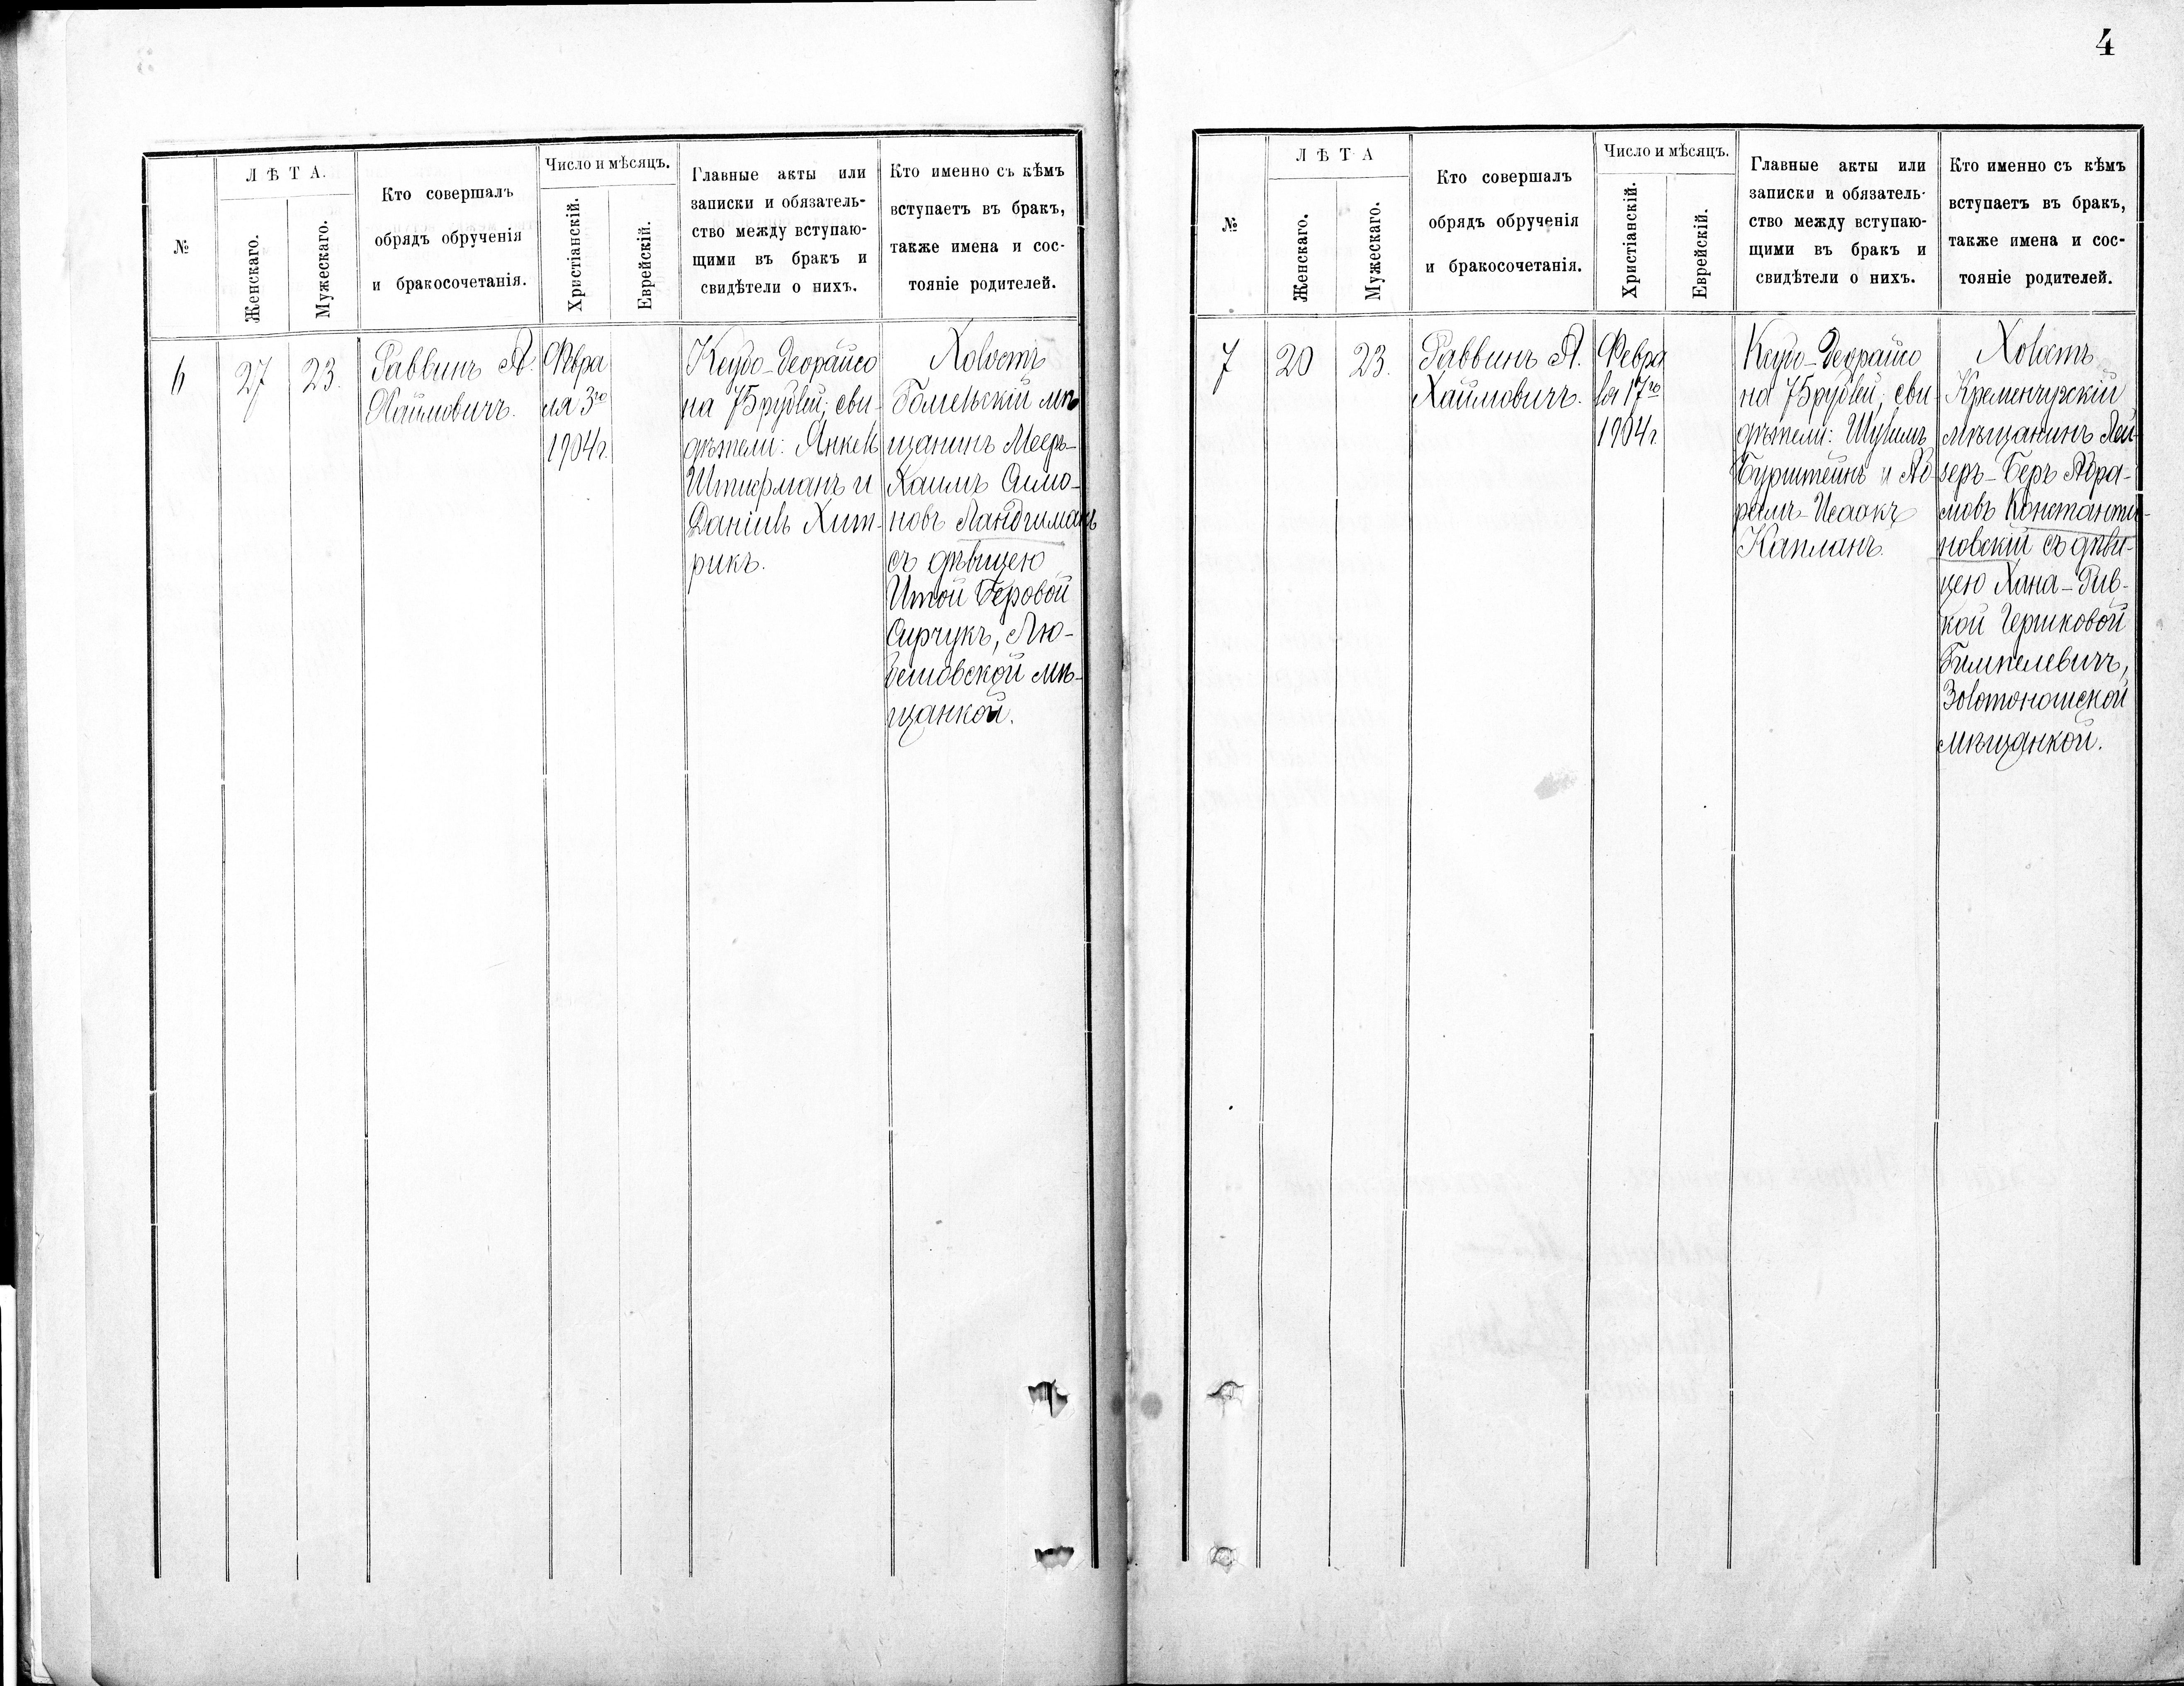 4
№
Л Ѣ Т А.
Женскаго.
Мужескаго.
Кто совершалъ
обрядъ обрученія
и бракосочетанія.
Число и мѣсяцъ.
Христіанскій.
Еврейскій.
Главные акты или
записки и обязатель-
ство между вступаю-
щими въ бракъ и
свидѣтели о нихъ.
Кто именно съ кѣмъ
вступаетъ въ бракъ,
также имена и сос-
тояніе родителей.
6
27
23.
Раввинъ А.
Хаймовичъ.
Февра
ля 3го
1904г.
Ксубо-Деорайсо
на 75 рублей; сви-
дѣтели: Янкель
Штифманъ и
Даніилъ Хит-
рикъ.
Холостъ
Гомельскій мѣ
щанинъ Мееръ-
Хаимъ Симо-
новъ Ландчиманъ
съ дѣвицею
Итой Беровой
Сирчукъ, Лю-
бешовской мѣ-
щанкой.
№
Л Ѣ Т А
Женскаго.
Мужескаго.
Кто совершалъ
обрядъ обрученія
и бракосочетанія.
Число и мѣсяцъ.
Христіанскій.
Еврейскій.
Главные акты или
записки и обязатель-
ство между вступаю-
щими въ бракъ и
свидѣтели о нихъ.
Кто именно съ кѣмъ
вступаетъ въ бракъ,
также имена и сос-
тояніе родителей.
7
20
23.
Раввинъ А.
Хаймовичъ.
Февра
ля 17го
1904г.
Ксубо-Деорайсо
на 75 рублей; сви-
дѣтели: Шулимъ
Бурштейнъ и Аб-
рамъ-Исаакъ
Капланъ.
Холостъ
Кременчугскій
мѣщанинъ Лей-
зеръ-Беръ Абра-
мовъ Константи-
новскій съ дѣви-
цею Хана-Рив-
кой Гершковой
Гимпелевичъ,
Золотоношской
мѣщанкой.